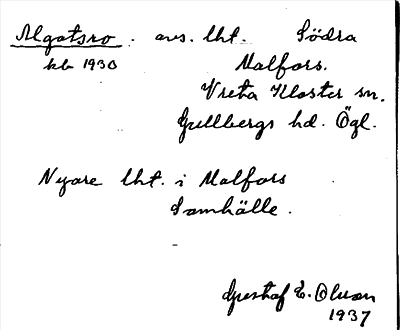 Algotsro. avs. lht. Södra
kb 1930 Malfors.
Vreta Kloster sn.
Gullbergs hd. Ögl.
Nyare lht. i Malfors
Samhälle.
Gustaf E. Olsson
1937